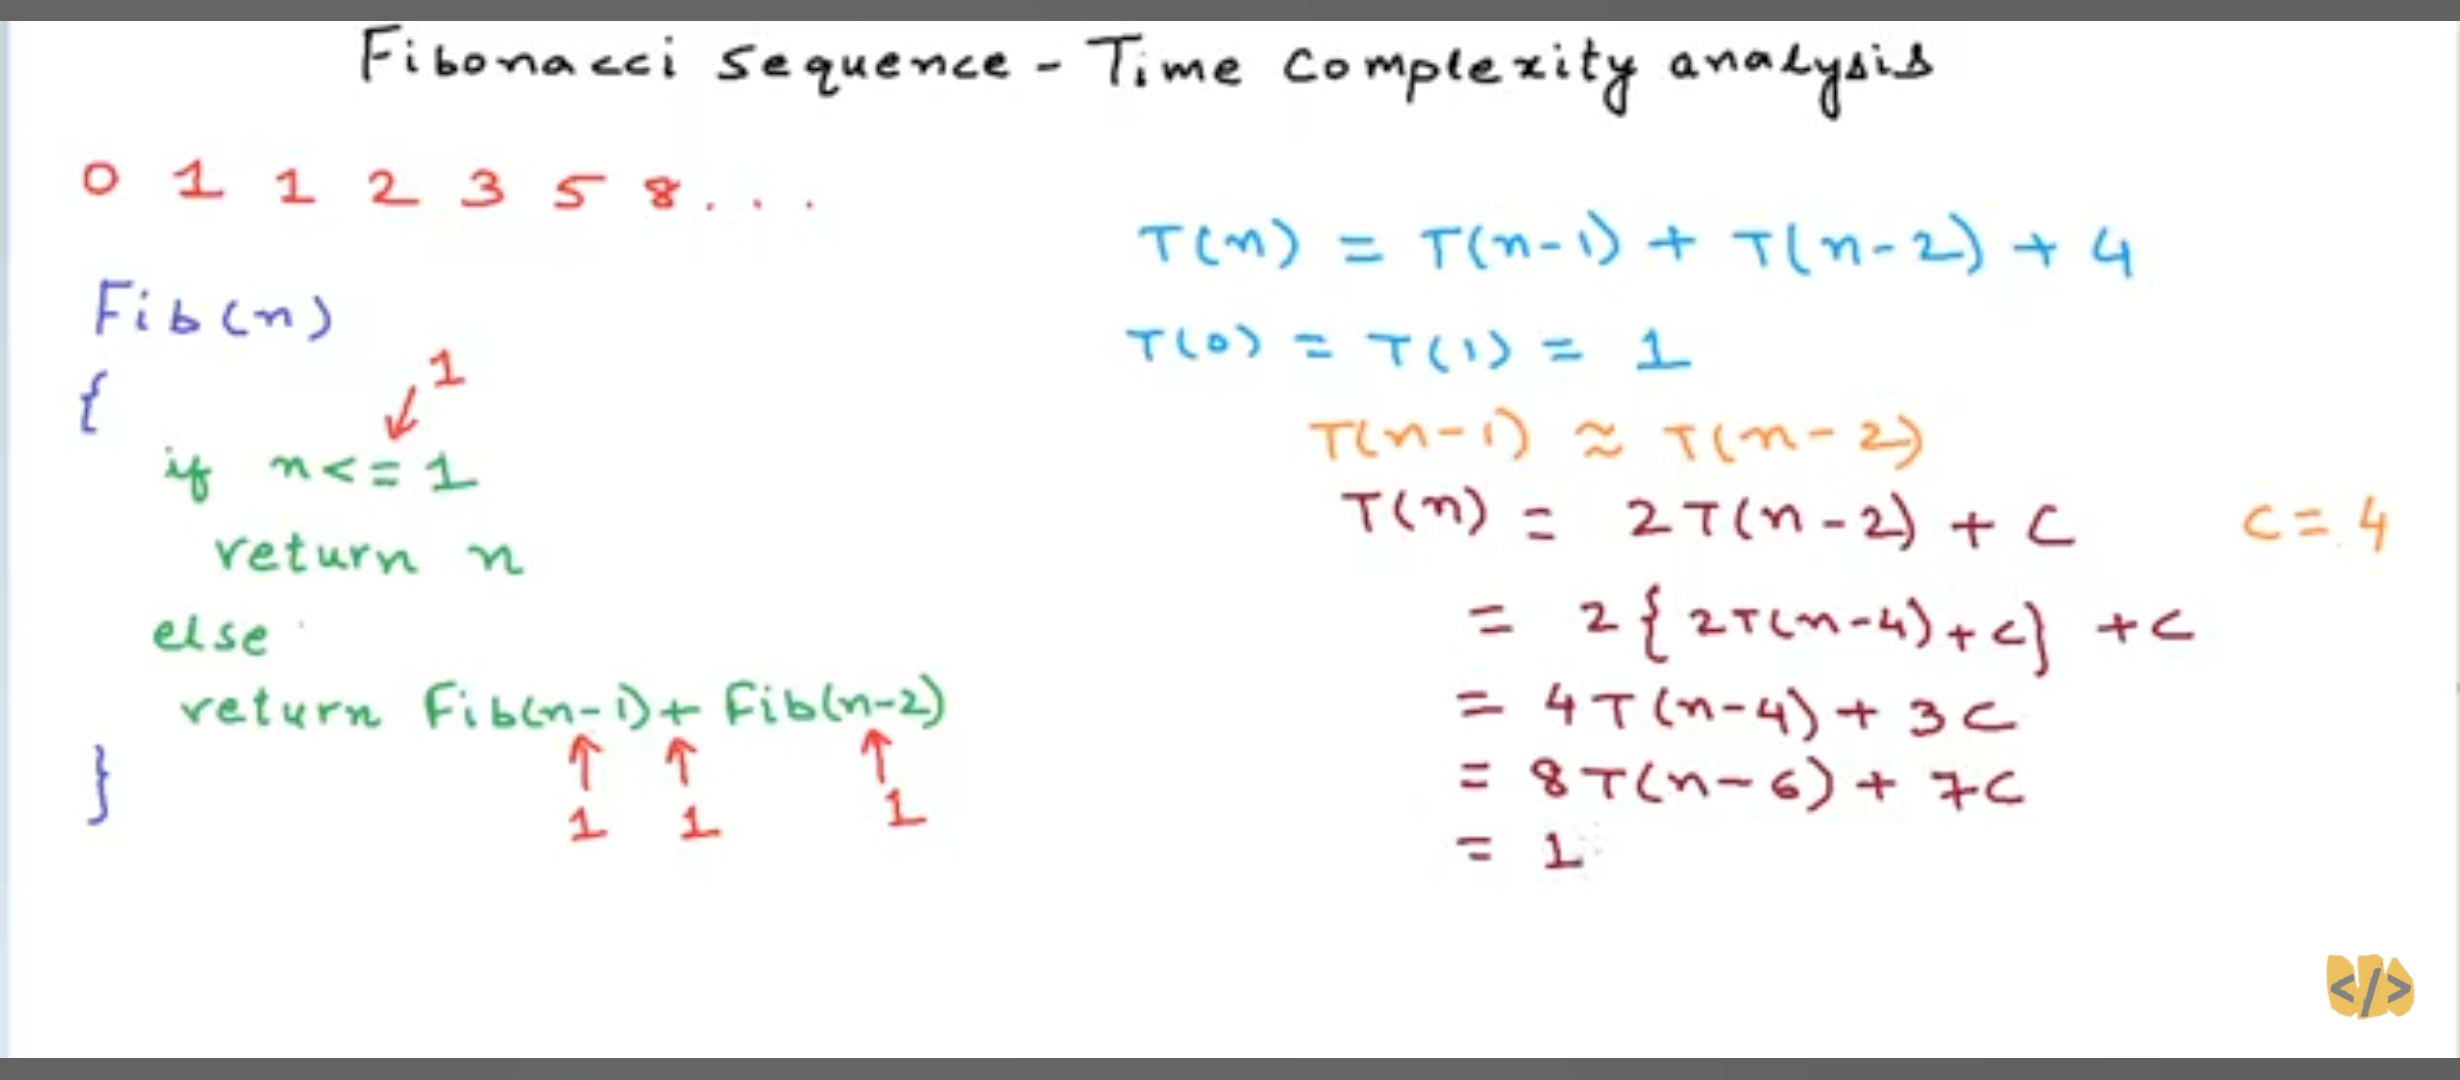 Fibonacci sequence - Time complexity analysis
0 1 1 2 3 5 8 . . .
Fib(n)
{
1
if n<=1
return n
else
return Fib(n-1)+ Fib(n-2)
1 1 1
}
T(n) = T(n-1) + T(n-2) + 4
T(0) = T(1) = 1
T(n-1) ≈ T(n-2)
T(n) = 2T(n-2) + C C = 4
= 2 { 2T(n-4)+C} +C
= 4T(n-4) + 3C
= 8T(n-6) + 7C
= 1
</>